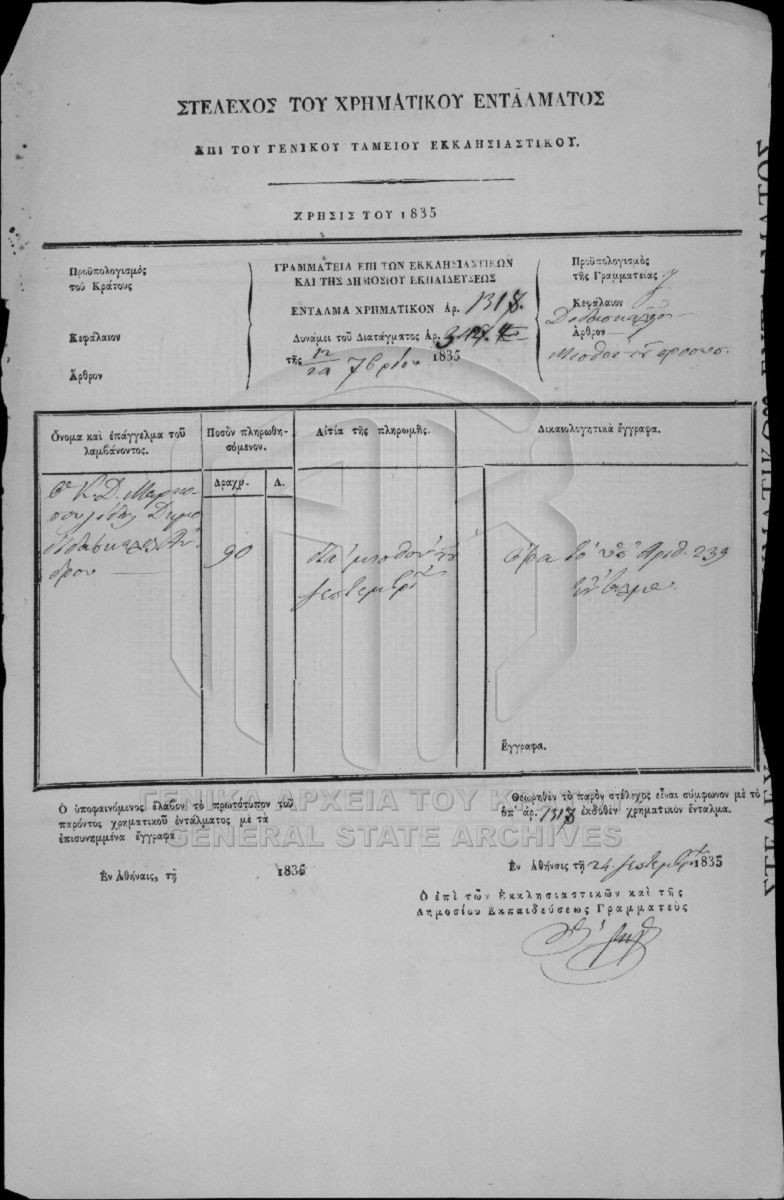 ΣΤΕΛΕΧΟΣ ΤΟΥ ΧΡΗΜΑΤΙΚΟΥ ΕΝΤΑΛΜΑΤΟΣ
ΕΠΙ ΤΟΥ ΓΕΝΙΚΟΥ ΤΑΜΕΙΟΥ ΕΚΚΛΗΣΙΑΣΤΙΚΟΥ.
ΧΡΗΣΙΣ ΤΟΥ 1835
Προϋπολογισμὸς
τοῦ Κράτους
Κεφάλαιον
Ἄρθρον
ΓΡΑΜΜΑΤΕΙΑ ΕΠΙ ΤΩΝ ΕΚΚΛΗΣΙΑΣΤΙΚΩΝ
ΚΑΙ ΤΗΣ ΔΗΜΟΣΙΟΥ ΕΚΠΑΙΔΕΥΣΕΩΣ
ΕΝΤΑΛΜΑ ΧΡΗΜΑΤΙΚΟΝ Ἀρ. 1318.
Δυνάμει τοῦ Διατάγματος Ἀρ.
τῆς 12/24 7βρίου 1835
Προϋπολογισμὸς
τῆς Γραμματείας
Κεφάλαιον
Ἄρθρον
Ὄνομα καὶ ἐπάγγελμα τοῦ
λαμβάνοντος.
Ποσὸν πληρωθη-
σόμενον.
Αἰτία τῆς πληρωμῆς.
Δικαιολογητικὰ ἔγγραφα.
Δραχμ. Λ.
90
μισθὸν
Σεπτεμβρί
ὅρα τὸ ὑπ' Ἀριθ. 239
ἔνταλμα.
Ἔγγραφα.
Ὁ ὑποφαινόμενος ἔλαβον τὸ πρωτότυπον τοῦ
παρόντος χρηματικοῦ ἐντάλματος μὲ τὰ
ἐπισυνημμένα ἔγγραφα
Ἐν Ἀθήναις, τῇ 1835
Θεωρηθὲν τὸ παρὸν στέλεχος εἶναι σύμφωνον μὲ τὸ
ὑπ' ἀρ. 1318 ἐκδοθὲν χρηματικὸν ἔνταλμα.
Ἐν Ἀθήναις τῇ 24 Σεπτεμβρ 1835
Ὁ ἐπὶ τῶν Ἐκκλησιαστικῶν καὶ τῆς
Δημοσίου Ἐκπαιδεύσεως Γραμματεὺς
ΓΕΝΙΚΑ ΑΡΧΕΙΑ ΤΟΥ Κ
GENERAL STATE ARCHIVES